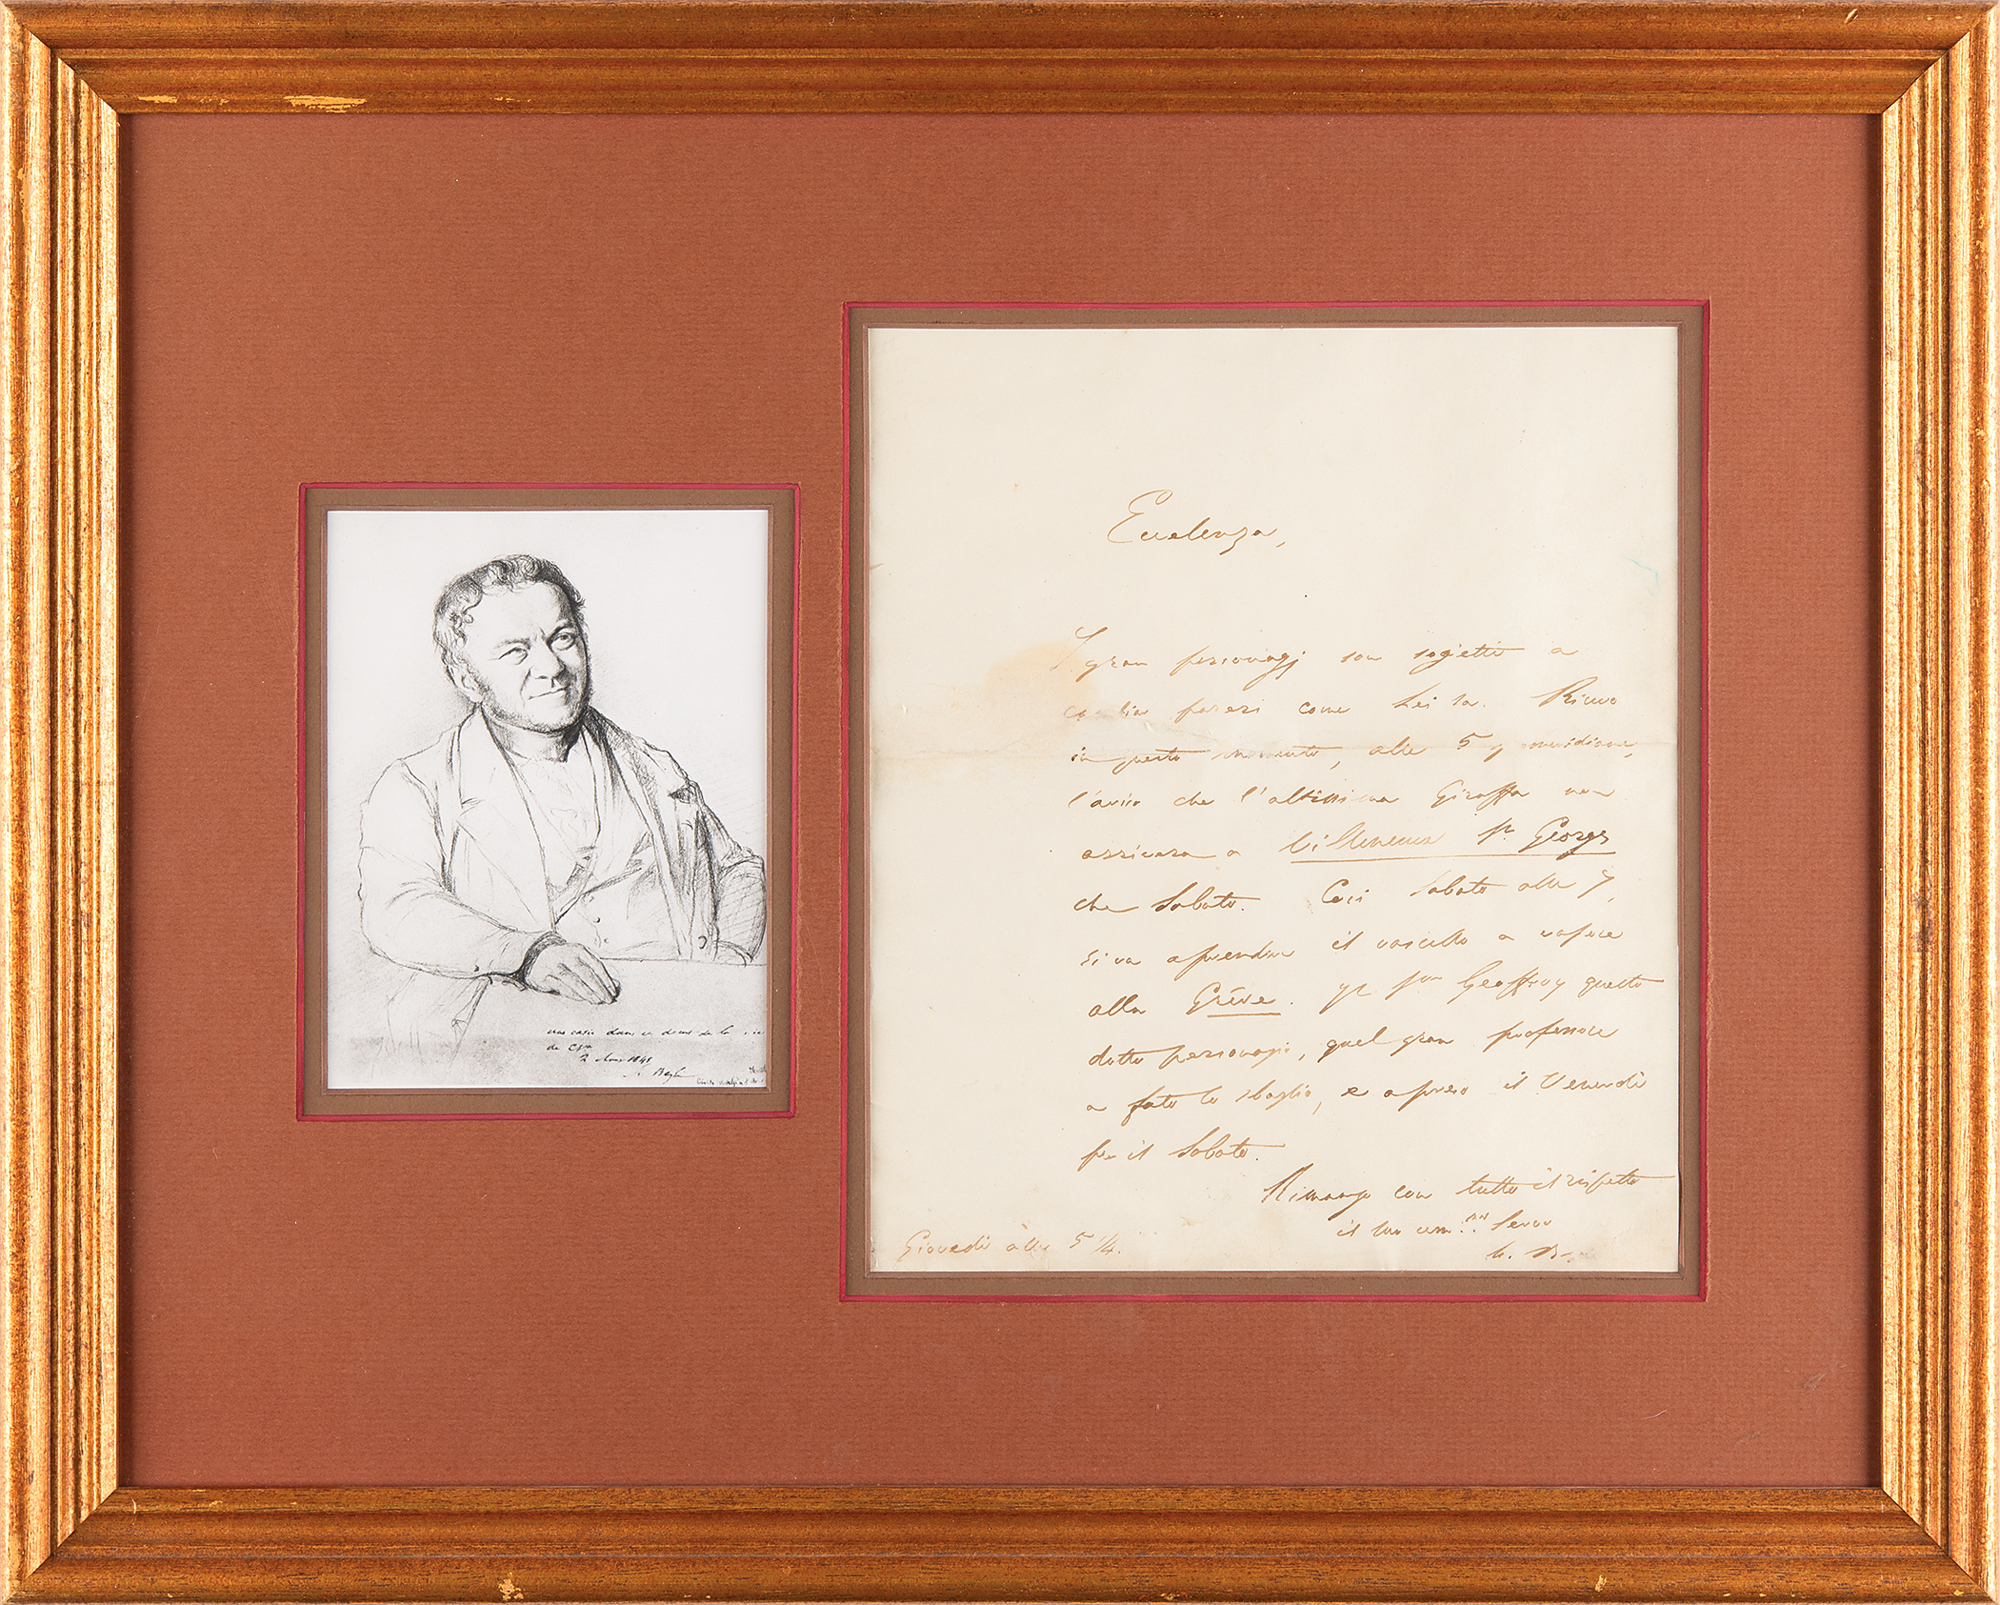 dans
de
2 1841
Beyle
Eccelenza,
I gran personagj son sogietti a
pareri come Lei sa. Ricevo
in questo momento, alle 5 meridiane,
l'aviso che l'altissima Giraffa non
arrivara a Villeneuve St Georges
che Sabato. Cosi Sabato alle 7,
si va a prendere il vascello a vapore
alla Grève. Geoffroy questo
dotto personagio, quel gran professore
a fato lo sbaglio, e a preso il Venerdi
per il Sabato.
Rimango con tutto il rispetto
il suo Servo
B.
Giovedi alle 5 1/4.